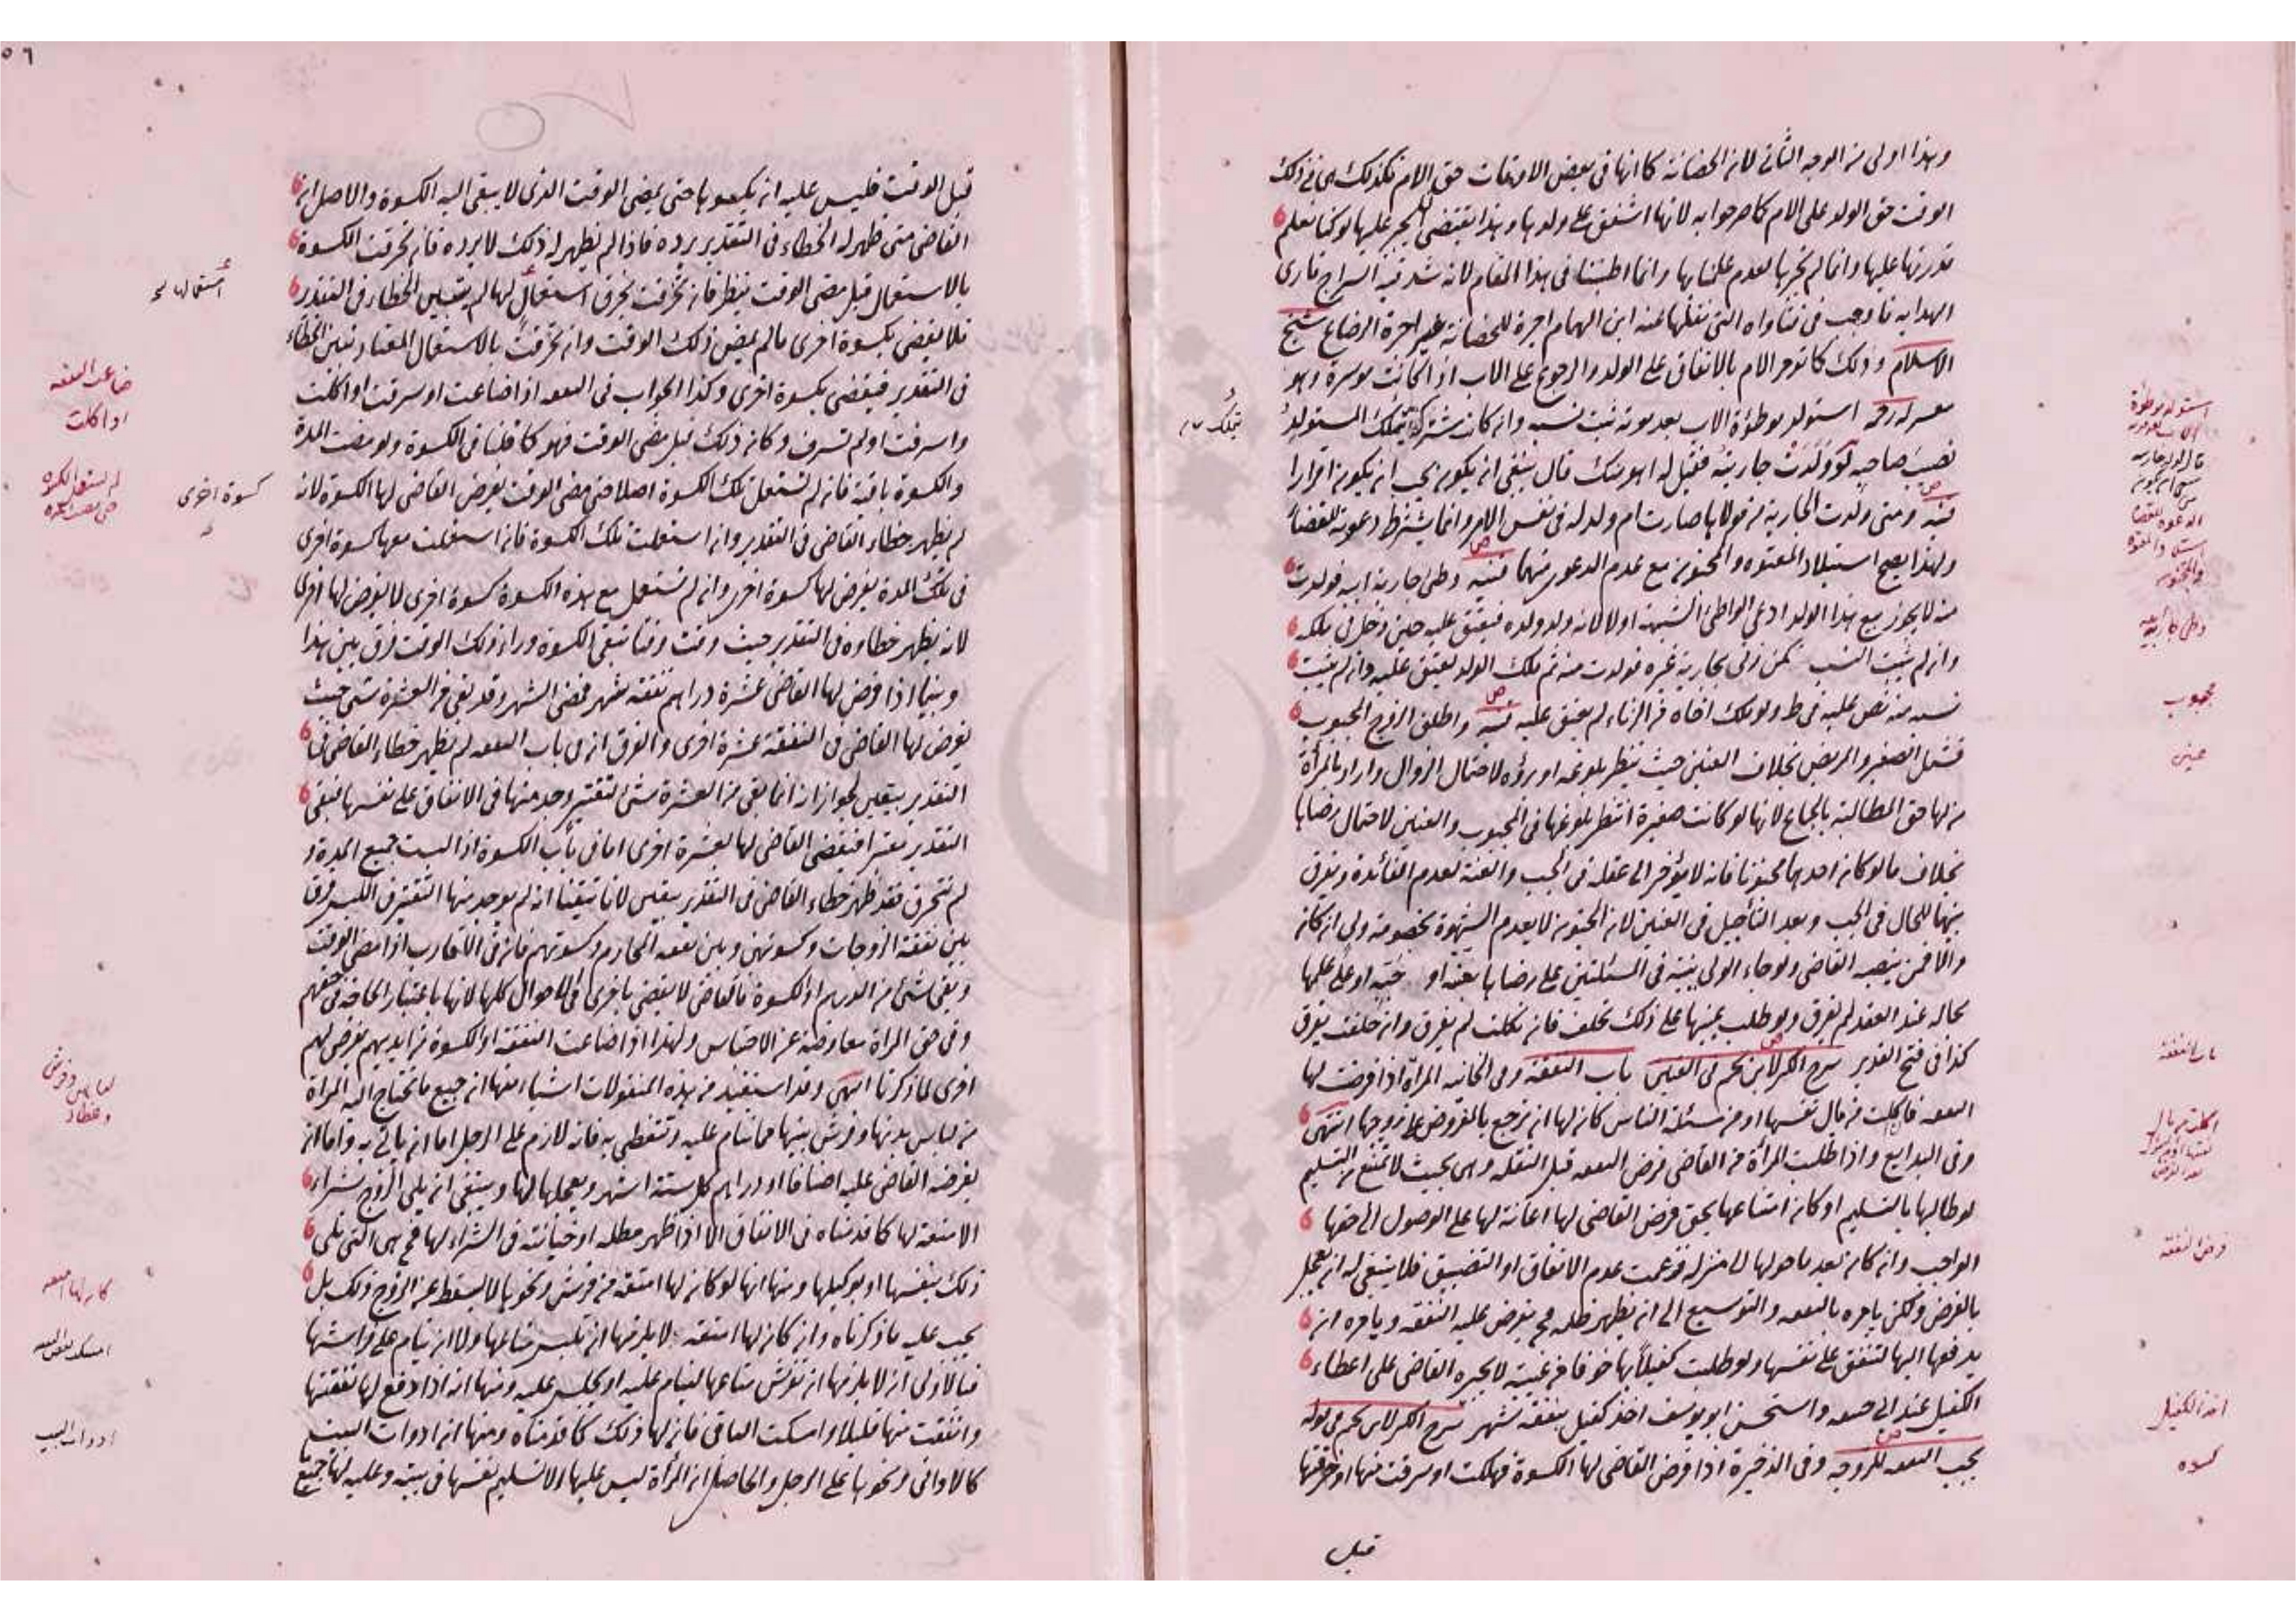 وهذا اولى من الوجه الثاني لان الحضانة كما انها في بعض الاوقات حق الام فكذلك هي في ذلك
الوقت حق الولد على الام كما صرحوا به لانها اشفق على ولدها وهذا يقتضي الجبر عليها لو كنا نعلم
قدرتها عليها وانما لم نجبرها لعدم علمنا بها وانما اطنبنا في هذا المقام لانه شد فيه السراج قاري
الهداية فاوجب في فتاواه التي نقلها عنه ابن الهمام اجرة للحضانة غير اجرة الرضاع شيخ
الاسلام وذلك كما تؤمر الام بالانفاق على الولد والرجوع على الاب اذا كانت موسرة وهو
معسر استولد موطؤة الاب بعد موته ثبت نسبه وان كانت مشتركة يتملك المستولد
نصيب صاحبه لو ولدت جاريته فقيل له اهو منك قال ينبغي ان يكون يجب ان يكون اقرارا
قنيه ومتى ولدت الجارية من مولاها صارت ام ولد له في نفس الامر وانما يشترط دعوته للقضاء
ولهذا يصح استيلاد المعتوه والمجنون مع عدم الدعوى منهما قنيه وطئ جارية ابيه فولدت
منه لا يجوز بيع هذا الولد ادعى الواطئ الشبهة او لا لانه ولد ولده فيعتق عليه حين دخل في ملكه
وان لم يثبت النسب كمن زنى بجارية غيره فولدت منه ثم ملك الولد يعتق عليه وان لم يثبت
نسبه منه نص عليه في ط ولو ملك اخاه من الزناء لم يعتق عليه قنيه واطلق الزوج المجبوب
فشمل الصغير والمريض بخلاف العنين حيث ينتظر بلوغه او برؤه لاحتمال الزوال واراد بالمرأة
من لها حق المطالبة بالجماع لانها لو كانت صغيرة انتظر بلوغها في المجبوب والعنين لاحتمال رضاها
بخلاف ما لو كان احدهما مجنونا فانه لا يؤخر الى عقله في الجب والعنة لعدم الفائدة ويفرق
بينهما للحال في الجب وبعد التأجيل في العنين لان الجنون لا يعدم الشهوة بخصومة ولي ان كان
والا فمن ينصبه القاضي ولو جاء الولي ببينة في المسئلتين على رضاها بعنته او جبه او على علمها
بحاله عند العقد لم يفرق ولو طلب يمينها على ذلك تحلف فان نكلت لم يفرق وان حلفت يفرق
كذا في فتح القدير شرح الكنز لابن نجيم في العنين باب النفقة وفي الخانية المرأة اذا فرضت لها
النفقة فاكلت من مال نفسها او من مسئلة الناس كان لها ان ترجع بالمفروض على زوجها انتهى
وفي البدايع واذا طلبت المرأة من القاضي فرض النفقة قبل النقلة وهي بحيث لا تمتنع من التسليم
لو طالبها بالتسليم او كان امتناعها بحق فرض القاضي لها اعانة لها على الوصول الى حقها
الواجب وان كان بعد ما حولها الى منزله فزعمت عدم الانفاق او التضييق فلا ينبغي له ان يعجل
بالفرض ولكن يامره بالنفقة والتوسيع الى ان يظهر ظلمه فح يفرض عليه النفقة ويامره ان
يدفعها اليها لتنفق على نفسها ولو طلبت كفيلا بها خوفا من غيبته لا يجبره القاضي على اعطاء
الكفيل عند ابي حنيفه واستحسن ابو يوسف اخذ كفيل بنفقة شهر شرح الكنز لابن نجيم في قوله
تجب النفقة للزوجه وفي الذخيرة اذا فرض القاضي لها الكسوة فهلكت او سرقت منها او خرقتها
قبل
يتملك
مجبوب
عنين
باب النفقة
فرض النفقه
اخذ الكفيل
كسوه
٥٦
قبل الوقت فليس عليه ان يكسوها حتى يمضي الوقت الذي لا يبقى اليه الكسوة والاصل ان
القاضي متى ظهر له الخطاء في التقدير يرده فاذا لم يظهر له ذلك لا يرده فان تخرقت الكسوة
بالاستعمال قبل مضي الوقت ينظر فان تخرقت بخرق استعمال لها لم يتبين الخطاء في التقدير
فلا يقضي بكسوة اخرى ما لم يمض ذلك الوقت وان تخرقت بالاستعمال المعتاد تعين الخطاء
في التقدير فيقضي بكسوة اخرى وكذا الجواب في النفقة اذا ضاعت او سرقت او اكلت
واسرفت او لم تسرف وكان ذلك قبل مضي الوقت فهو كما قلنا في الكسوة ولو مضت المدة
والكسوة باقية فان لم تستعمل تلك الكسوة اصلا حتى مضى الوقت يفرض القاضي لها الكسوة لانه
لم يظهر خطاء القاضي في التقدير وان استعملت تلك الكسوة فان استعملت معها كسوة اخرى
في تلك المدة يفرض لها كسوة اخرى وان لم تستعمل مع هذه الكسوة كسوة اخرى لا يفرض لها اخرى
لانه يظهر خطاؤه في التقدير حيث وقت وقتا تبقى الكسوة وراء ذلك الوقت فرق بين هذا
وبينما اذا فرض لها القاضي عشرة دراهم نفقة شهر فمضى الشهر وقد بقي من العشرة شئ حيث
يفرض لها القاضي من النفقة عشرة اخرى والفرق ان في باب النفقة لم يظهر خطاء القاضي في
التقدير بيقين لجواز ان انما بقي من العشرة شئ لتقتير وجد منها في الانفاق على نفسها فبقي
التقدير معتبرا فيقضي القاضي لها بعشرة اخرى اما في باب الكسوة اذا لبست جميع المدة و
لم تتخرق فقد ظهر خطاء القاضي في التقدير بيقين لانا تيقنا انه لم يوجد منها التقتير في اللبس فرق
بين نفقة الزوجات وكسوتهن وبين نفقة المحارم وكسوتهم فان في الاقارب اذا مضى الوقت
وبقي شئ من الدراهم او الكسوة فالقاضي لا يقضي باخرى في الاحوال كلها لانها باعتبار الحاجة في حقهم
وفي حق المراة معاوضة عن الاحتباس ولهذا اذا ضاعت النفقة او الكسوة من ايديهم يفرض لهم
اخرى لما ذكرنا انتهى وقد استفيد من هذه المنقولات اشياء منها ان جميع ما تحتاج اليه المراة
من لباس بدنها وفرش بيتها مما تنام عليه وتتغطى به فانه لازم على الرجل اما ان ياتي به واما ان
يفرضه القاضي عليه اصنافا او دراهم كل ستة اشهر ويعجلها لها وينبغي ان يلي الزوج شراء
الامتعة لها كما قدمناه في الانفاق الا اذا ظهر مطله او خيانته في الشراء لها فح هي التي تلي
ذلك بنفسها او بوكيلها ومنها انها لو كان لها امتعة من فرش ونحوها لا يسقط عن الزوج ذلك بل
يجب عليه ما ذكرناه وان كان لها امتعة لا يلزمها ان تلبس متاعها ولا ان تنام على فراشها
فبالاولى ان لا يلزمها ان تفرش متاعها لينام عليه او يجلس عليه ومنها انه اذا دفع لها نفقتها
وانفقت منها قليلا وامسكت الباقي فان لها ذلك كما قدمناه ومنها ان ادوات البيت
كالاواني ونحوها على الرجل والحاصل ان المرأة ليس عليها الا تسليم نفسها في بيته وعليه لها جميع
استعمالها
ضاعت النفقه
او اكلت
كسوة اخرى
لباس وفرش
وغطاء
ادوات البيت